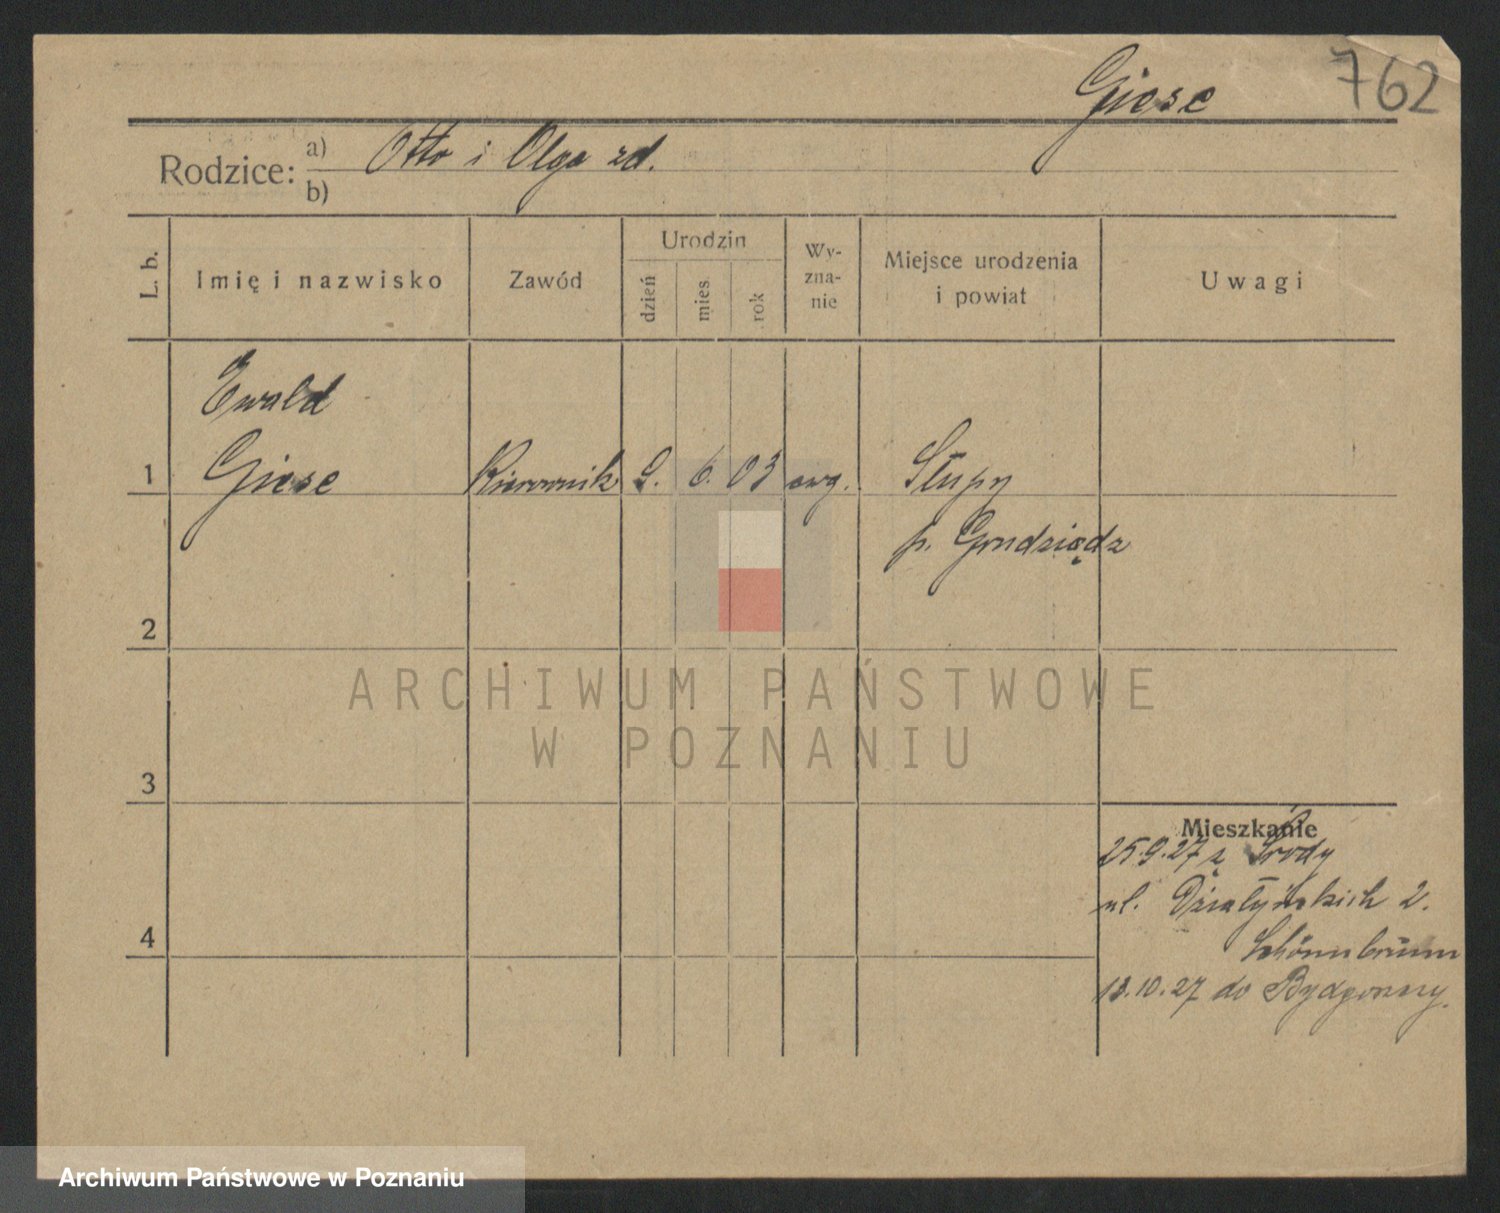 762
Giese
Rodzice: a) Otto i Olga zd.
b)
L. b.
Imię i nazwisko
Zawód
Urodzin
dzień
mies.
rok
Wy-
zna-
nie
Miejsce urodzenia
i powiat
Uwagi
Ewald
1 Giese Kierownik 9. 6. 03 ewg. Słupy
p. Grudziądz
2
3
4
Mieszkanie
25.9.27 z Środy
ul. Działyńskich 2.
Schönnbrunn
13.10.27 do Bydgoszczy.
ARCHIWUM PAŃSTWOWE
W POZNANIU
Archiwum Państwowe w Poznaniu